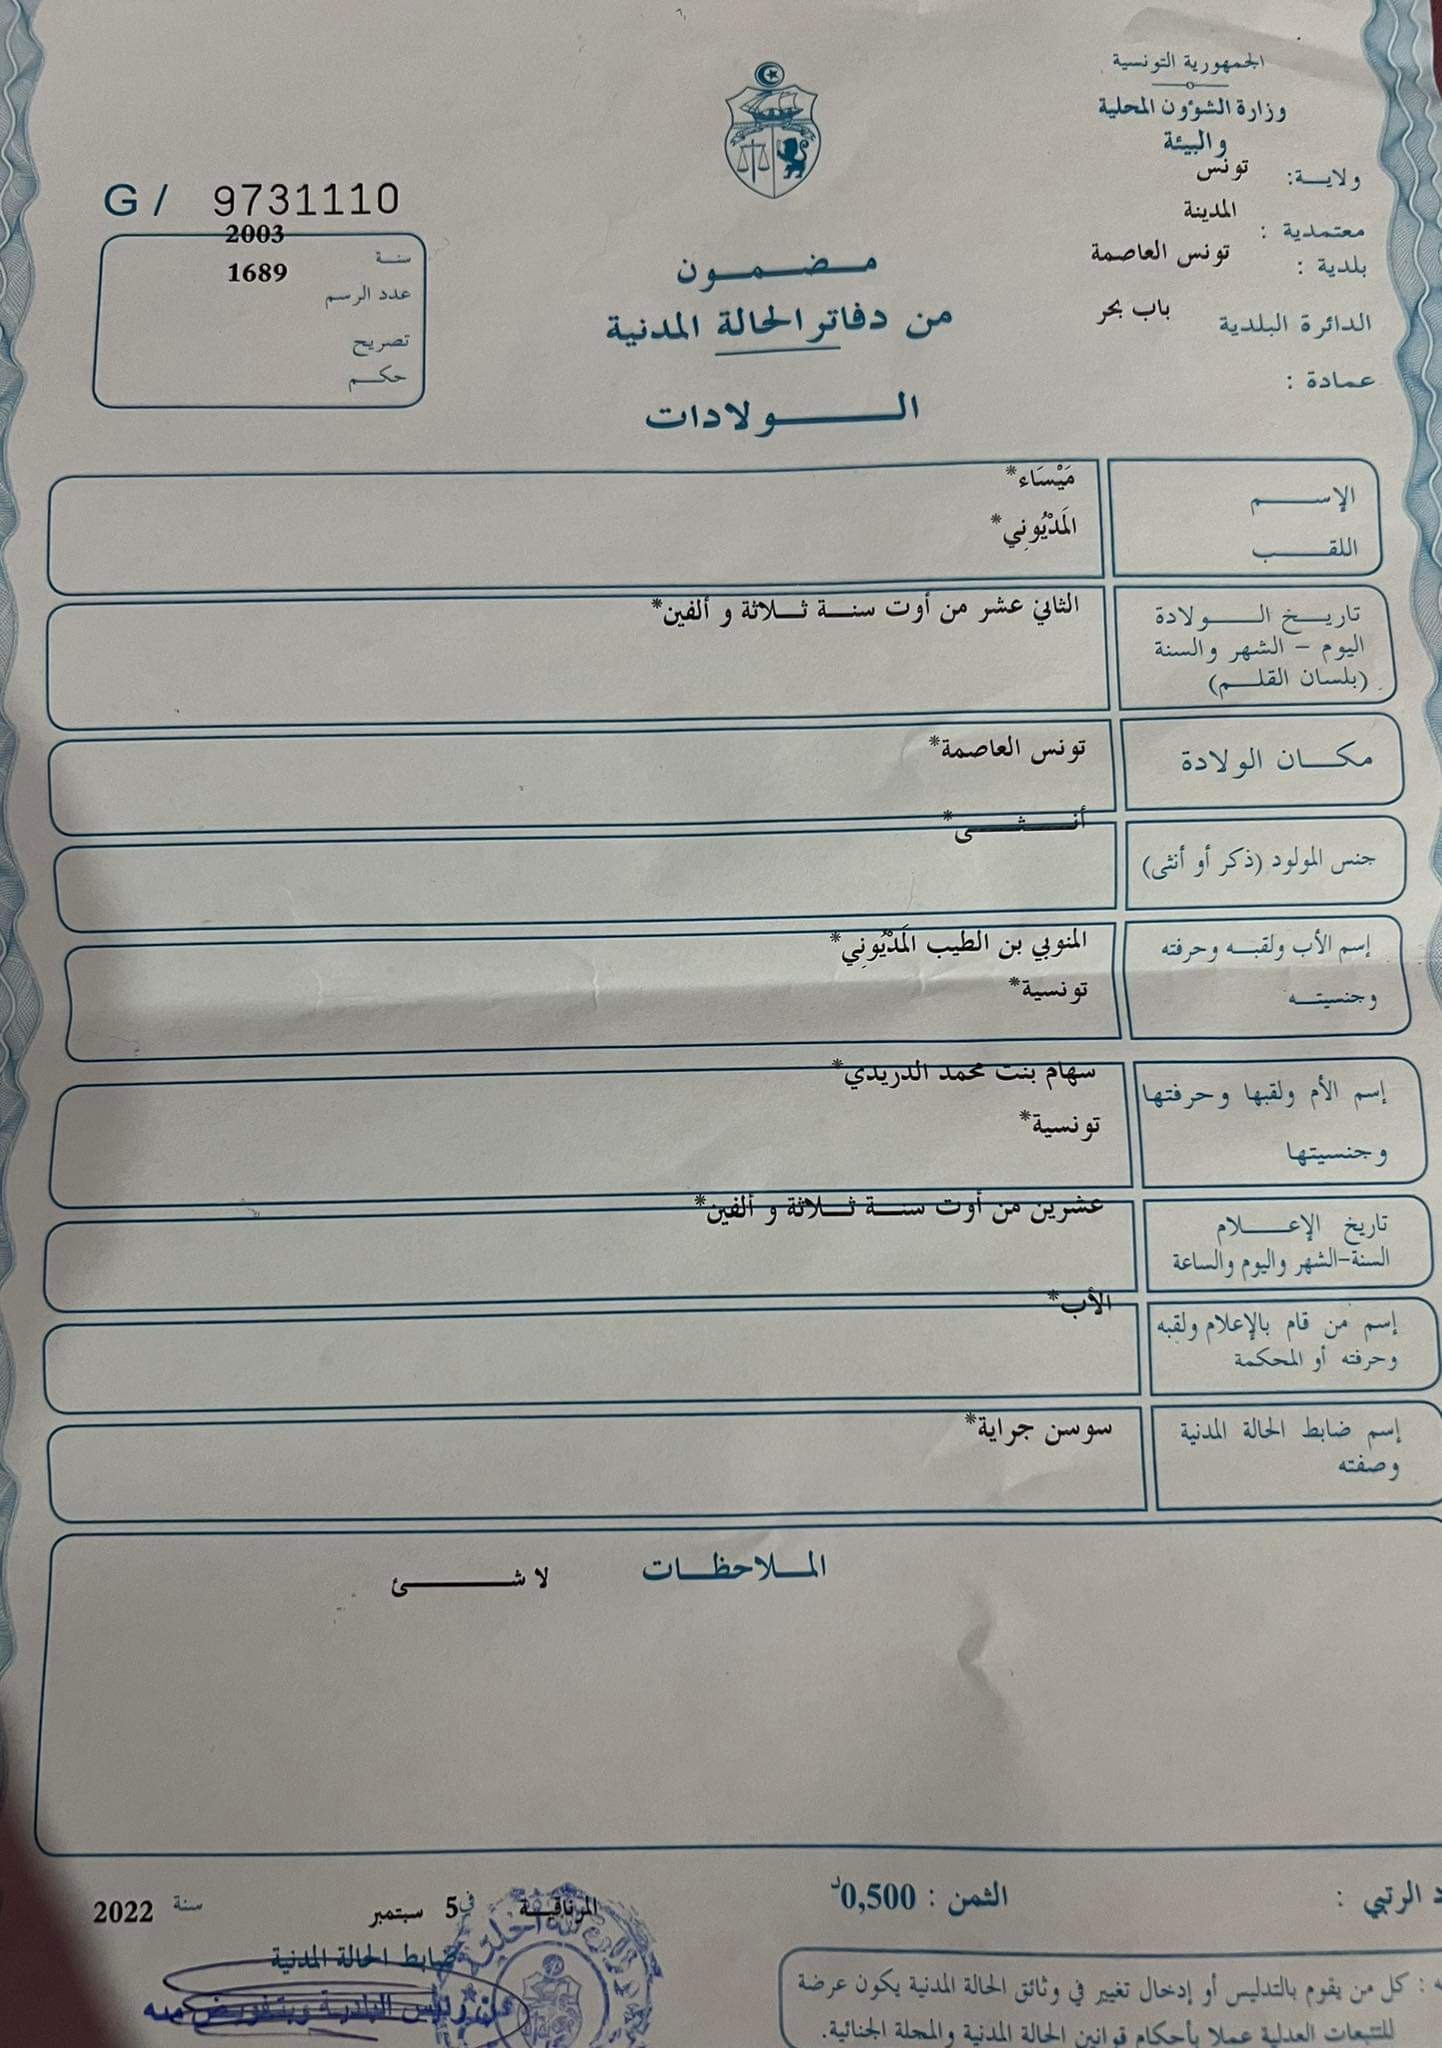 الجمهورية التونسية
وزارة الشؤون المحلية
والبيئة
ولاية: تونس
معتمدية : المدينة
بلدية : تونس العاصمة
الدائرة البلدية باب بحر
عمادة :
G / 9731110
سنة 2003
عدد الرسم 1689
تصريح
حكم
مضمون
من دفاتر الحالة المدنية
الولادات
الإسم مَيْسَاء*
اللقب المَدْيُونِي*
تاريخ الولادة الثاني عشر من أوت سنة ثلاثة و ألفين*
اليوم - الشهر والسنة
(بلسان القلم)
مكان الولادة تونس العاصمة*
جنس المولود (ذكر أو أنثى) أنثى*
إسم الأب ولقبه وحرفته المنوبي بن الطيب المَدْيُونِي*
وجنسيته تونسية*
إسم الأم ولقبها وحرفتها سهام بنت محمد الدريدي*
وجنسيتها تونسية*
تاريخ الإعلام عشرين من أوت سنة ثلاثة و ألفين*
السنة-الشهر واليوم والساعة
إسم من قام بالإعلام ولقبه الأب*
وحرفته أو المحكمة
إسم ضابط الحالة المدنية سوسن جراية*
وصفته
الملاحظات
لا شئ
الرتبي :
الثمن : 0,500د
المرناقية في 5 سبتمبر سنة 2022
ضابط الحالة المدنية
عن رئيس البلدية وبتفويض منه
: كل من يقوم بالتدليس أو إدخال تغيير في وثائق الحالة المدنية يكون عرضة
للتتبعات العدلية عملا بأحكام قوانين الحالة المدنية والمجلة الجنائية.